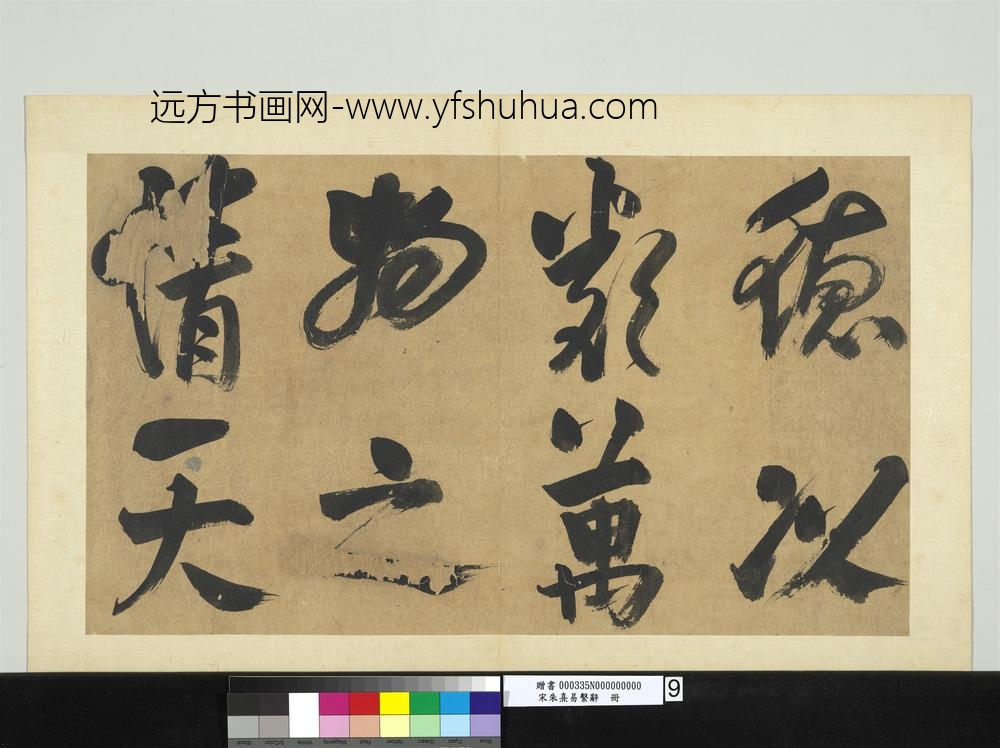 远方书画网-www.yfshuhua.com
德以
類萬
物之
情天
贈書 000335N000000000
宋朱熹易繫辭 冊
9
Black
3/Color
White
Magenta
Red
Yellow
Green
Cyan
Blue